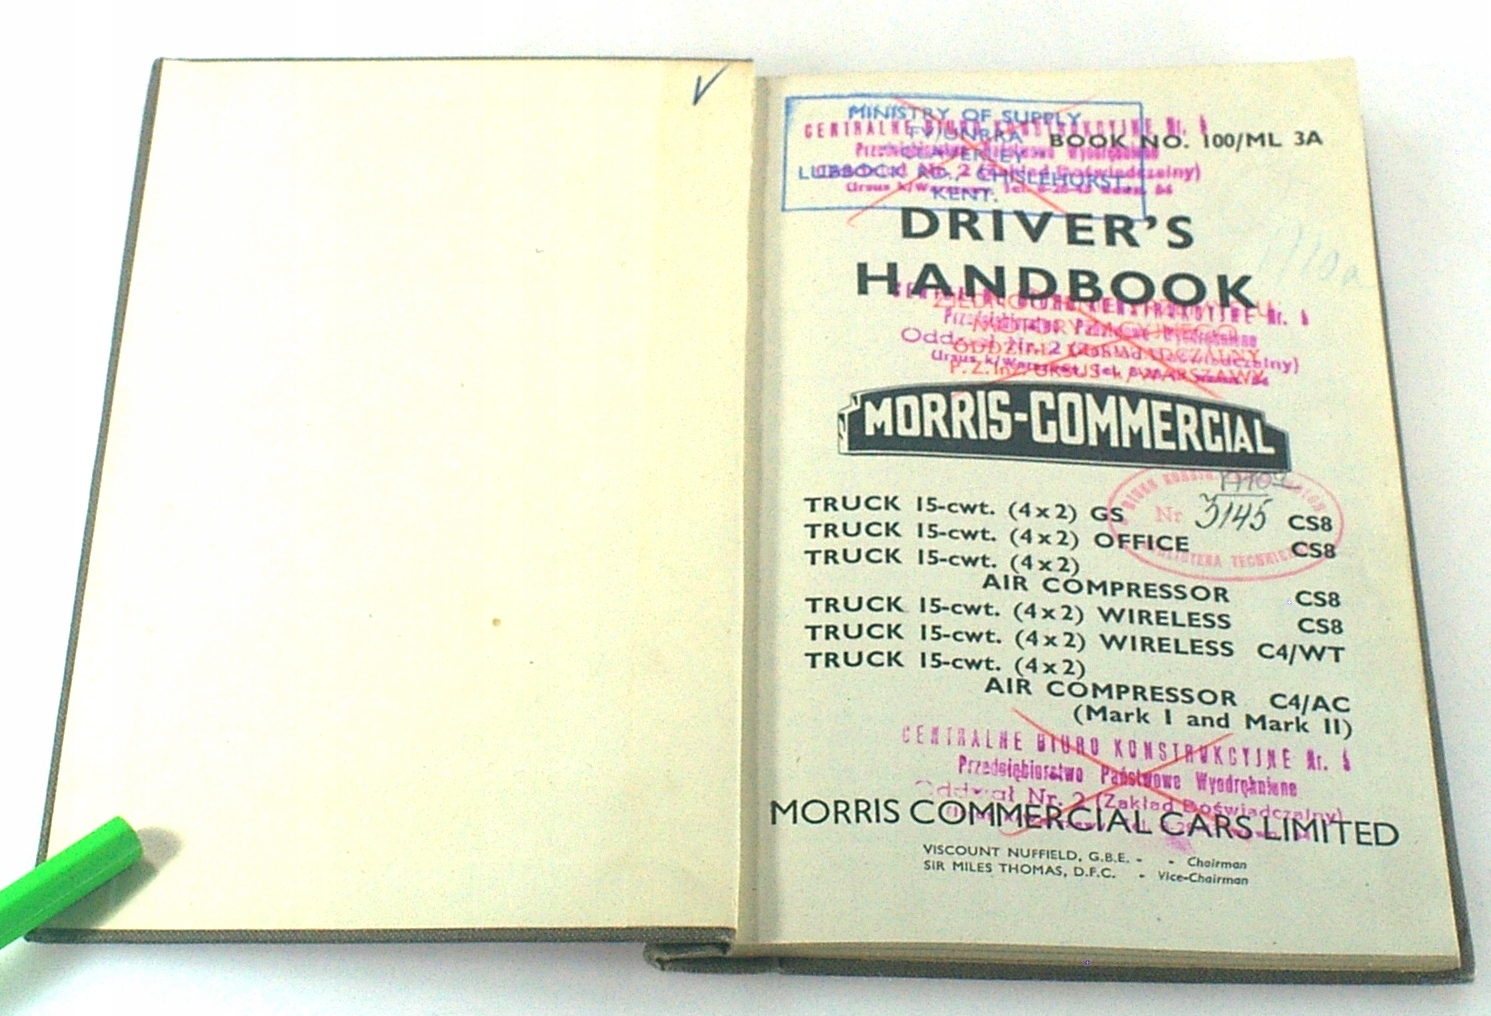 MINISTRY OF SUPPLY
FV/UNRRA
CLAVERLEY
LUBBOCK RD., CHISLEHURST,
KENT.
CENTRALNE BIURO KONSTRUKCYJNE Nr. 1
BOOK NO. 100/ML 3A
DRIVER'S
HANDBOOK
CENTRALNE BIURO KONSTRUKCYJNE Nr. 1
Przedsiębiorstwo Państwowe Wyodrębnione
Oddział Nr. 2 (Zakład Doświadczalny)
MORRIS-COMMERCIAL
Nr 3145
BIBLIOTEKA TECHNICZNA
TRUCK 15-cwt. (4x2) GS CS8
TRUCK 15-cwt. (4x2) OFFICE CS8
TRUCK 15-cwt. (4x2)
AIR COMPRESSOR CS8
TRUCK 15-cwt. (4x2) WIRELESS CS8
TRUCK 15-cwt. (4x2) WIRELESS C4/WT
TRUCK 15-cwt. (4x2)
AIR COMPRESSOR C4/AC
(Mark I and Mark II)
CENTRALNE BIURO KONSTRUKCYJNE Nr. 1
Przedsiębiorstwo Państwowe Wyodrębnione
Oddział Nr. 2 (Zakład Doświadczalny)
MORRIS COMMERCIAL CARS LIMITED
VISCOUNT NUFFIELD, G.B.E. - - Chairman
SIR MILES THOMAS, D.F.C. - Vice-Chairman